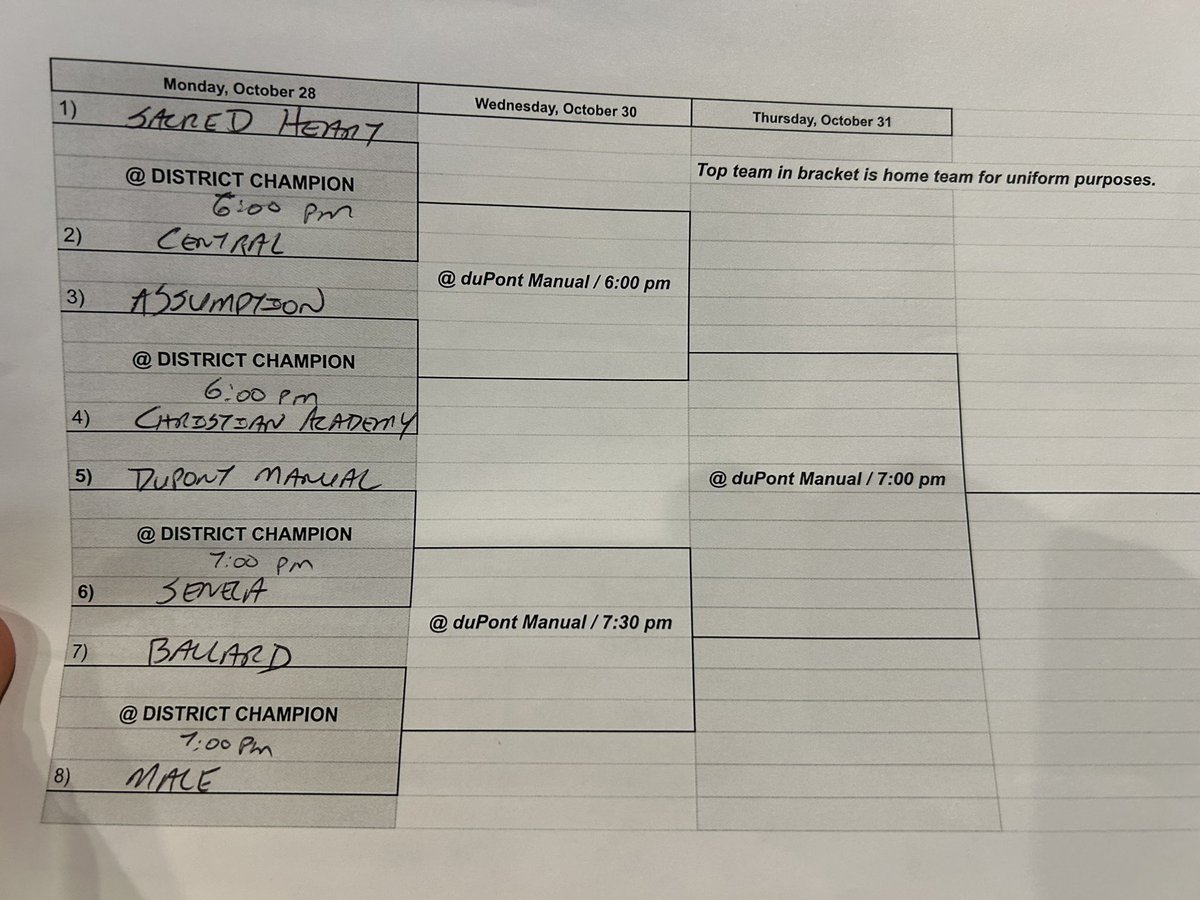 Monday, October 28
Wednesday, October 30
Thursday, October 31
1) SACRED HEART
Top team in bracket is home team for uniform purposes.
@ DISTRICT CHAMPION
6:00 pm
2) CENTRAL
@ duPont Manual / 6:00 pm
3) ASSUMPTION
@ DISTRICT CHAMPION
6:00 pm
4) CHRISTIAN ACADEMY
5) DUPONT MANUAL
@ duPont Manual / 7:00 pm
@ DISTRICT CHAMPION
7:00 pm
6) SENECA
@ duPont Manual / 7:30 pm
7) BALLARD
@ DISTRICT CHAMPION
7:00 Pm
8) MALE